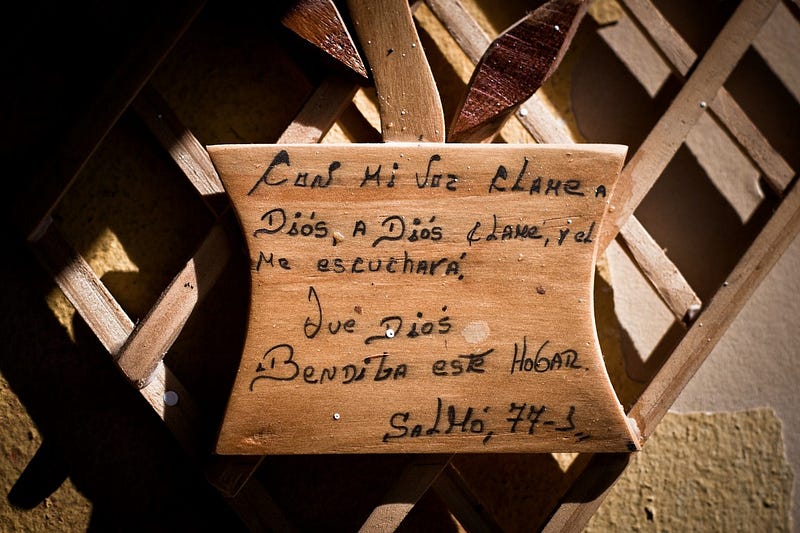 Con Mi Voz CLAMÉ A
Diós, A Diós CLAMÉ, y el
Me escuchará.
Que Diós
Bendiga este HoGAR.
SaLMó, 77-1,,